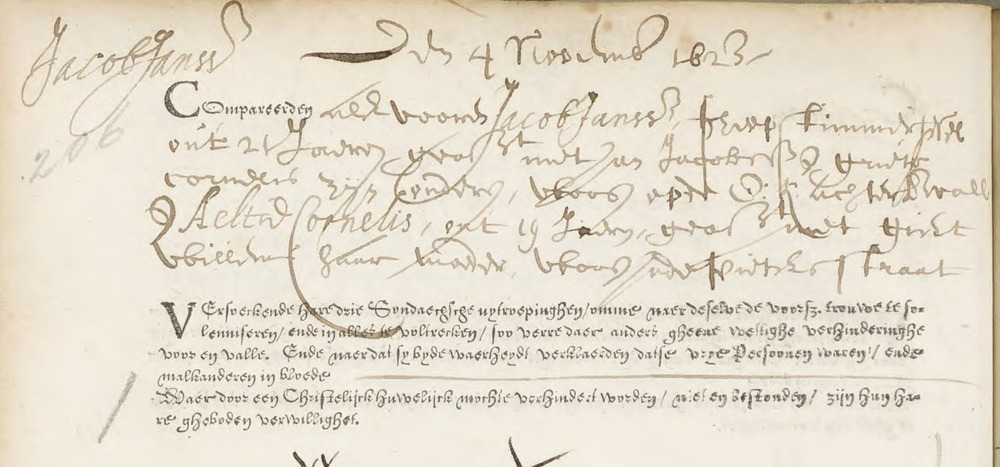 Jacob Janss
Den 4 Novembr 1623
206
Compareerden als vooren Jacob Janss, scheep timmerman
out 21 Jaeren geass met Jan Jacobss & Griete
cornelis zijn ouders, woon op de O: Z: Achterburchwall
& Aeltie Cornelis, out 19 Jaeren, geass met Griet
Willems haar moeder, woon inde Pieters straat
VErsoeckende hare drie Sondaechsche uytroepinghen / omme naer de selve de voorsz. trouwe te so-
lenniseren / ende in alles te voltrecken / soo verre daer anders gheene wettighe verhinderinghe
voor en valle. Ende naer dat sy by de waerheydt verklaerden datse vrye Persoonen waren / ende
malkanderen in bloede
Waer door een Christelijck huwelijck mochte verhindert worden / niet en bestonden / zijn hun ha-
re gheboden verwillighet.